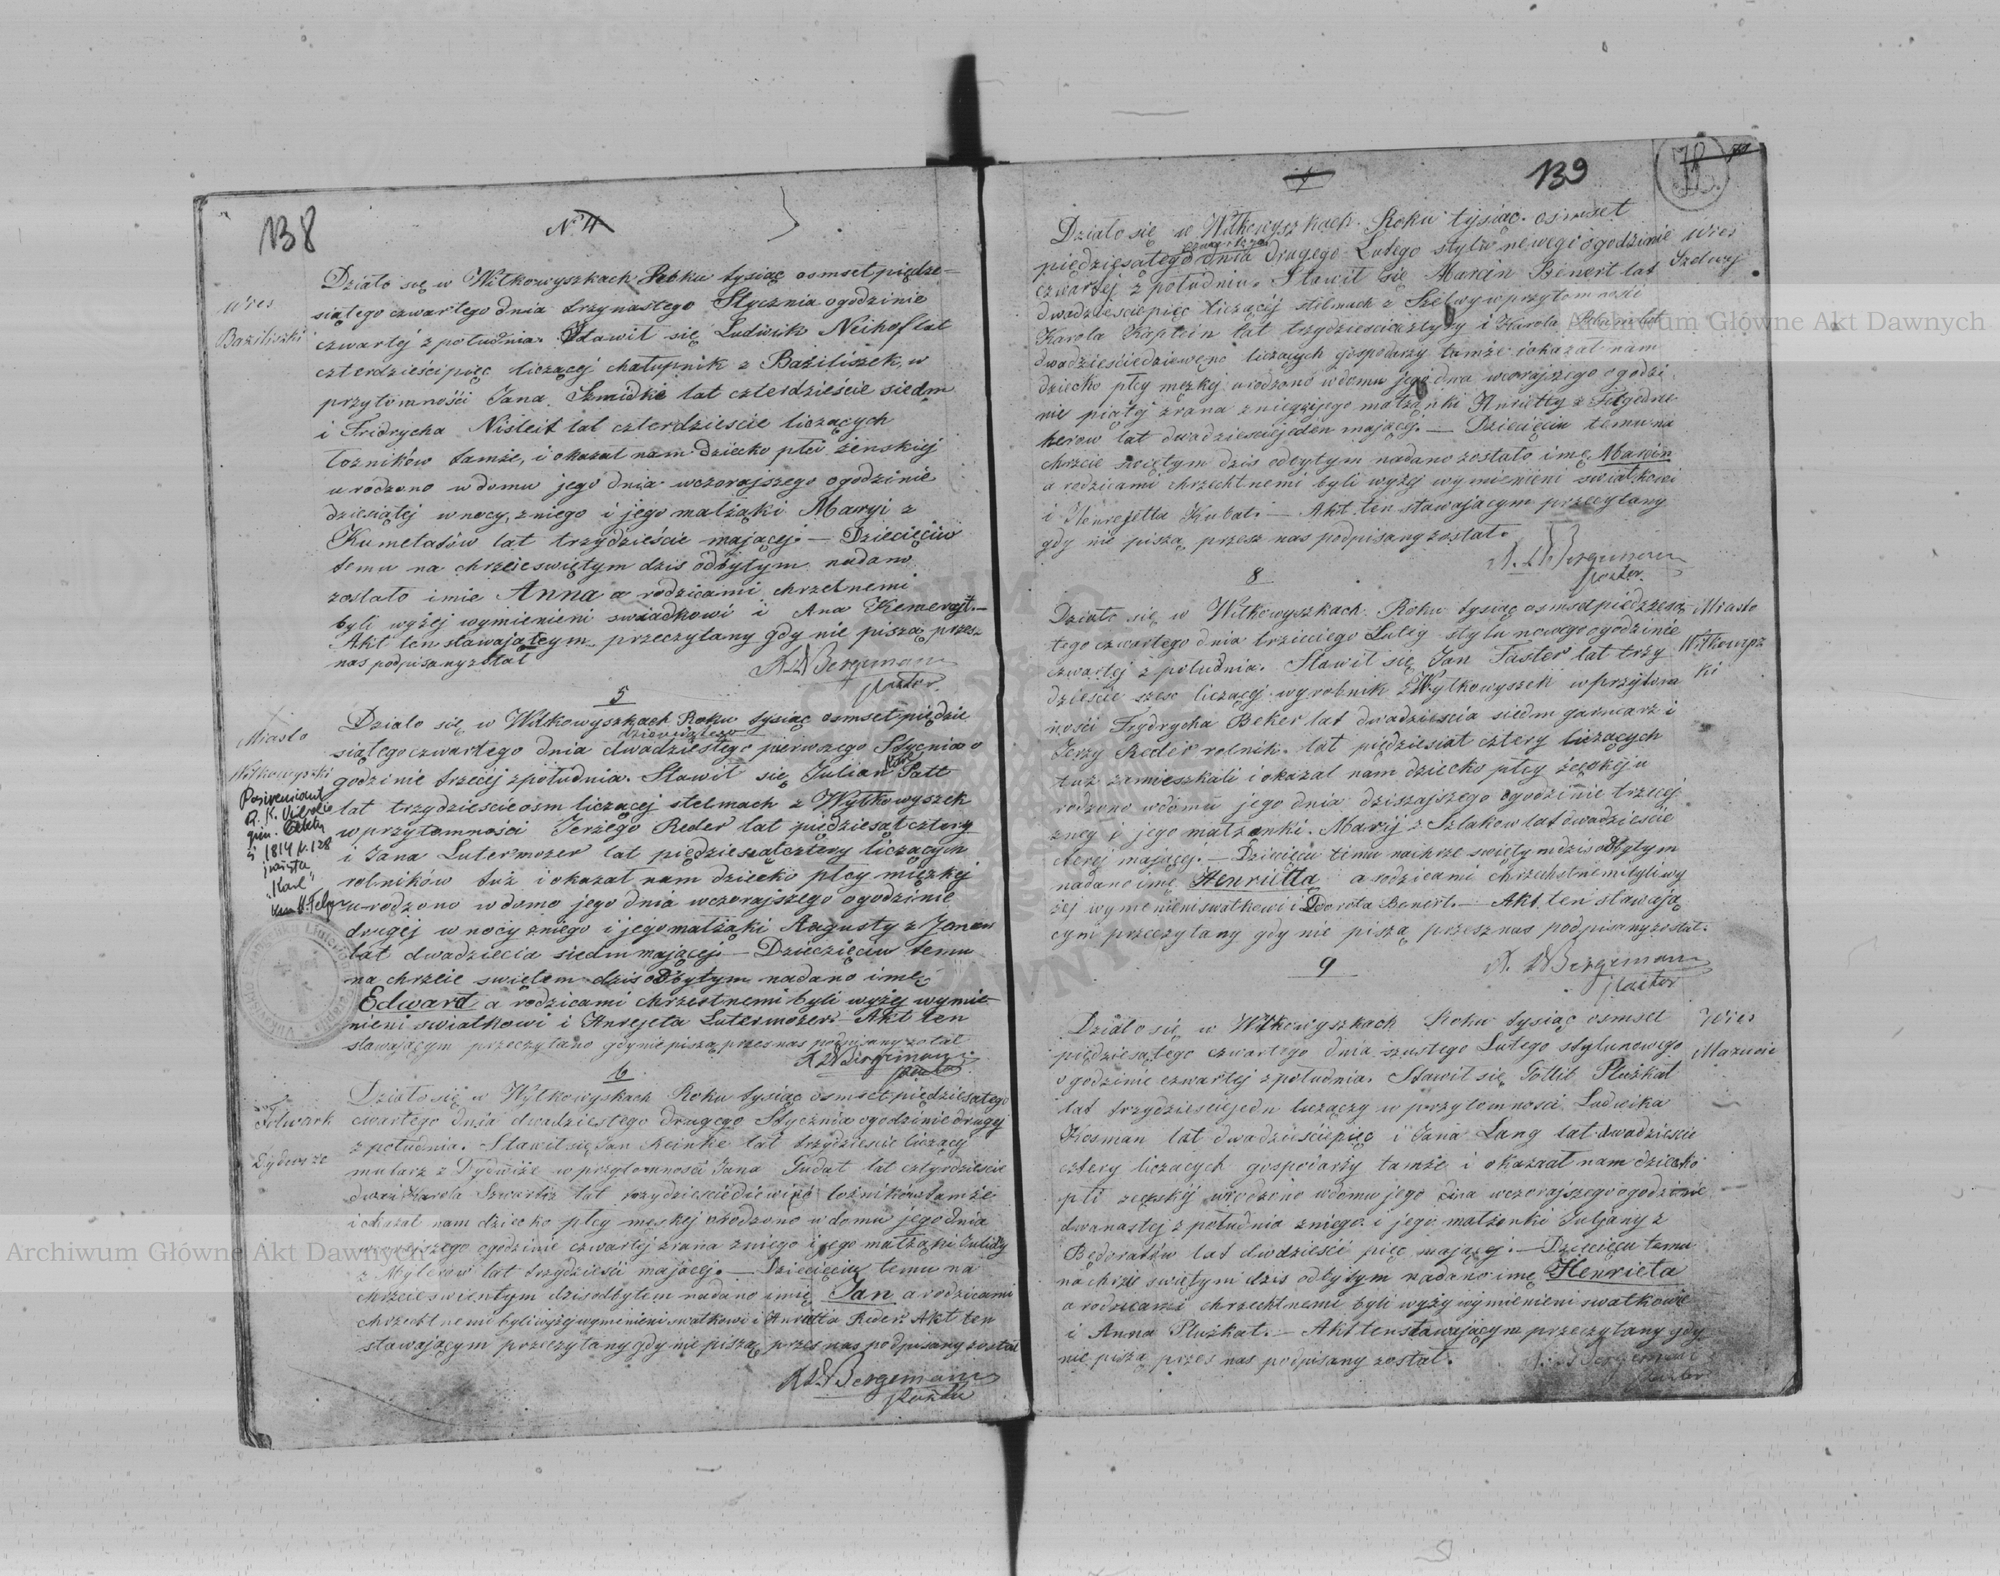 138
N 4
Wies
Baziliszki
Działo się w Wiłkowyszkach Roku tysiąc osmset piędzie=
siątego czwartego dnia trzynastego Stycznia ogodzinie
czwartej z południa. Stawił się Ludwik Neihof lat
czterdzieści pięc liczącej chałupnik z Baziliszek, w
przytomności Jana Szmidke lat czterdzieście siedm
i Fridrycha Nisleit lat czterdzieście liczących
łoznikow tamże, i okazał nam dziecko płci żenskiej
urodzono w domu jego dnia wczorajszego ogodzinie
dziesiątej w nocy, z niego i jego małżąki Maryi z
Kumetatów lat trzydzieście mającej. — Dziecięciu
temu na chrzcie swiętym dzis odbytym nadano
zostało imie Anna a rodzicami chrzetnemi
byli wyżej wymienieni swiadkowi i Ana Kemerajt.—
Akt ten stawającym przeczytany gdy nie piszą przez
nas podpisany został
Bergemann
Pastor.
5
Miasto
Wiłkowyszki
Działo się w Wiłkowyszkach Roku tysiąc osmset piędzie
siątego czwartego dnia dwadziestego pierwszego Stycnia o
godzinie trzeciej z południa. Stawił się Julian Patt
lat trzydzieście osm liczącej stelmach z Wyłkowyszek
w przytomności Jerzego Reder lat pięđziesąt cztery
i Jana Lutermozer lat pięđziesąt cztery liczących
rolników tuż i okazał nam dziecko płcy męzkej
urodzono w domo jego dnia wczorajszego ogodzinie
drugej w nocy z niego i jego małżąki Augusty z Jenen
lat dwadziecia siedm mającej. — Dzieczięciu temu
na chrzcie swietem dzis odbytym nadano imię
Edward a rodzicami chrzestnemi byli wyżej wymie-
nieni swiatkowi i Anrejeta Lutermozer. Akt ten
stawającym przeczytano gdy nie piszą przes nas podpisany zostal
Bergemann
Pastor
6
Folwark
Działo się w Wyłkowyskach Roku tysiąc osmset piędziesiątego
cwartego dnia dwadziestego drugego Stycznia ogodzinie drugej
z południa. Stawił się Jan Reinke lat trzydzieście liczącej
mularz z w przytomności Jana Gudat lat cztyrdzieście
dwa i Karola Szwartz lat łoznikow tamże
i okazał nam dziecko płcy męskej urodzono w domu jego dnia
wczorajszego ogodzinie czwartej zrana z niego i jego małżąki Julidy
z Mylerow lat trzydzieści mającej. — Dziecięciu temu na
chrzcie swientym dzis odbytem nadano imię Jan a rodzicami
chrzestnemi byli wyżej wymienieni swatkowi i Anretta Reder. Akt ten
stawającym przeczytany gdy nie piszą przes nas podpisany został
Bergemann
Pastor
139
Wies
Szelwy
Działo się w Wiłkowyszkach Roku tysiąc osmset
piędziesątego czwartego dnia Drugego Lutego stylu nowego ogodzinie
czwartej z południa. Stawił się Marcin Benert lat
dwadzieście pięc liczącej stelmach z Szelwy w przytomności
Karola Kaptein lat trzydzieście cztyry i Karola lat
dwadzieście dziewęnc liczących gospodarzy tamże i okazał nam
dziecko płcy męzkej urodzono w domu jego dna wcorajszego ogodzi
nie piątej zrana z niego i jego małżąnki Anrietty z
lat dwadzieście jeden mającej. — Dziecięciu temu na
chrzcie swiętym dzis odbytym nadano zostało imę Marcin
a rodzicami chrzechtnemi byli wyżej wymienieni swiatkowi
i Henrejetta Kubat. — Akt ten stawającym przeczytany
gdy nie piszą przesz nas podpisany został.
Bergemann
Pastor.
8
Miasto
Działo się w Wiłkowyszkach Roku tysiąc osmset piędziesią
tego czwartego dnia trzeciego Luteg stylu nowego ogodzinie
czwartej z południa. Stawił się Jan Taster lat trzy
dzieście szesc liczącej wyrobnik z Wyłkowyszek w przytom
ności Frydrycha Beker lat dwadziescia siedm garncarz i
Jerzy Reder rolnik lat piędziesiąt cztery liczących
tuż zamieszkali i okazał nam dziecko płcy
rodzono w domu jego dnia dziszajszego ogodzinie trzecej
z neg i jego małżonki. Maryj z Szlakow lat dwadzieście
mającej. — Dziecięcu temu na chrze swiętym dzis odbytym
nadano imę Henrietta a rodzicami chrzechstnemi byli wy
żej wymienieni swatkowi i Dorota Benert. — Akt ten stawają
cym przeczytany gdy nie piszą przesz nas podpisany został.
Bergemann
Pastor
9
Wies
Działo się w Wiłkowyszkach Roku tysiąc osmset
piędziesątego czwartego dnia szustego Lutego stylu nowego
ogodzinie czwartej z południa. Stawił się Gotlit Pluzkat
lat trzydzieście jedn liczączy w przytomnosci Ludwika
Kosman lat dwadzieście pięc i Jana Lang lat dwadzieście
cztery liczących gospodarży tamże i okazał nam dziecko
płi urodzono w domu jego dna wczorajszego ogodzinie
dwanastej z południa z niego i jego małżonki Juljany z
Będoratów lat dwdzieści pięc mającej. — Dziecięcu temu
na chrzie swiętym dzis odbytym nadano imę Henrieta
a rodzicami chrzechtnemi byli wyżej wymienieni swatkowie
i Anna Pluzkat. — Akt ten stawającym przeczytany gdy
nie piszą przes nas podpisany został.
Bergemann
Pastor
Archiwum Główne Akt Dawnych
Archiwum Główne Akt Dawnych